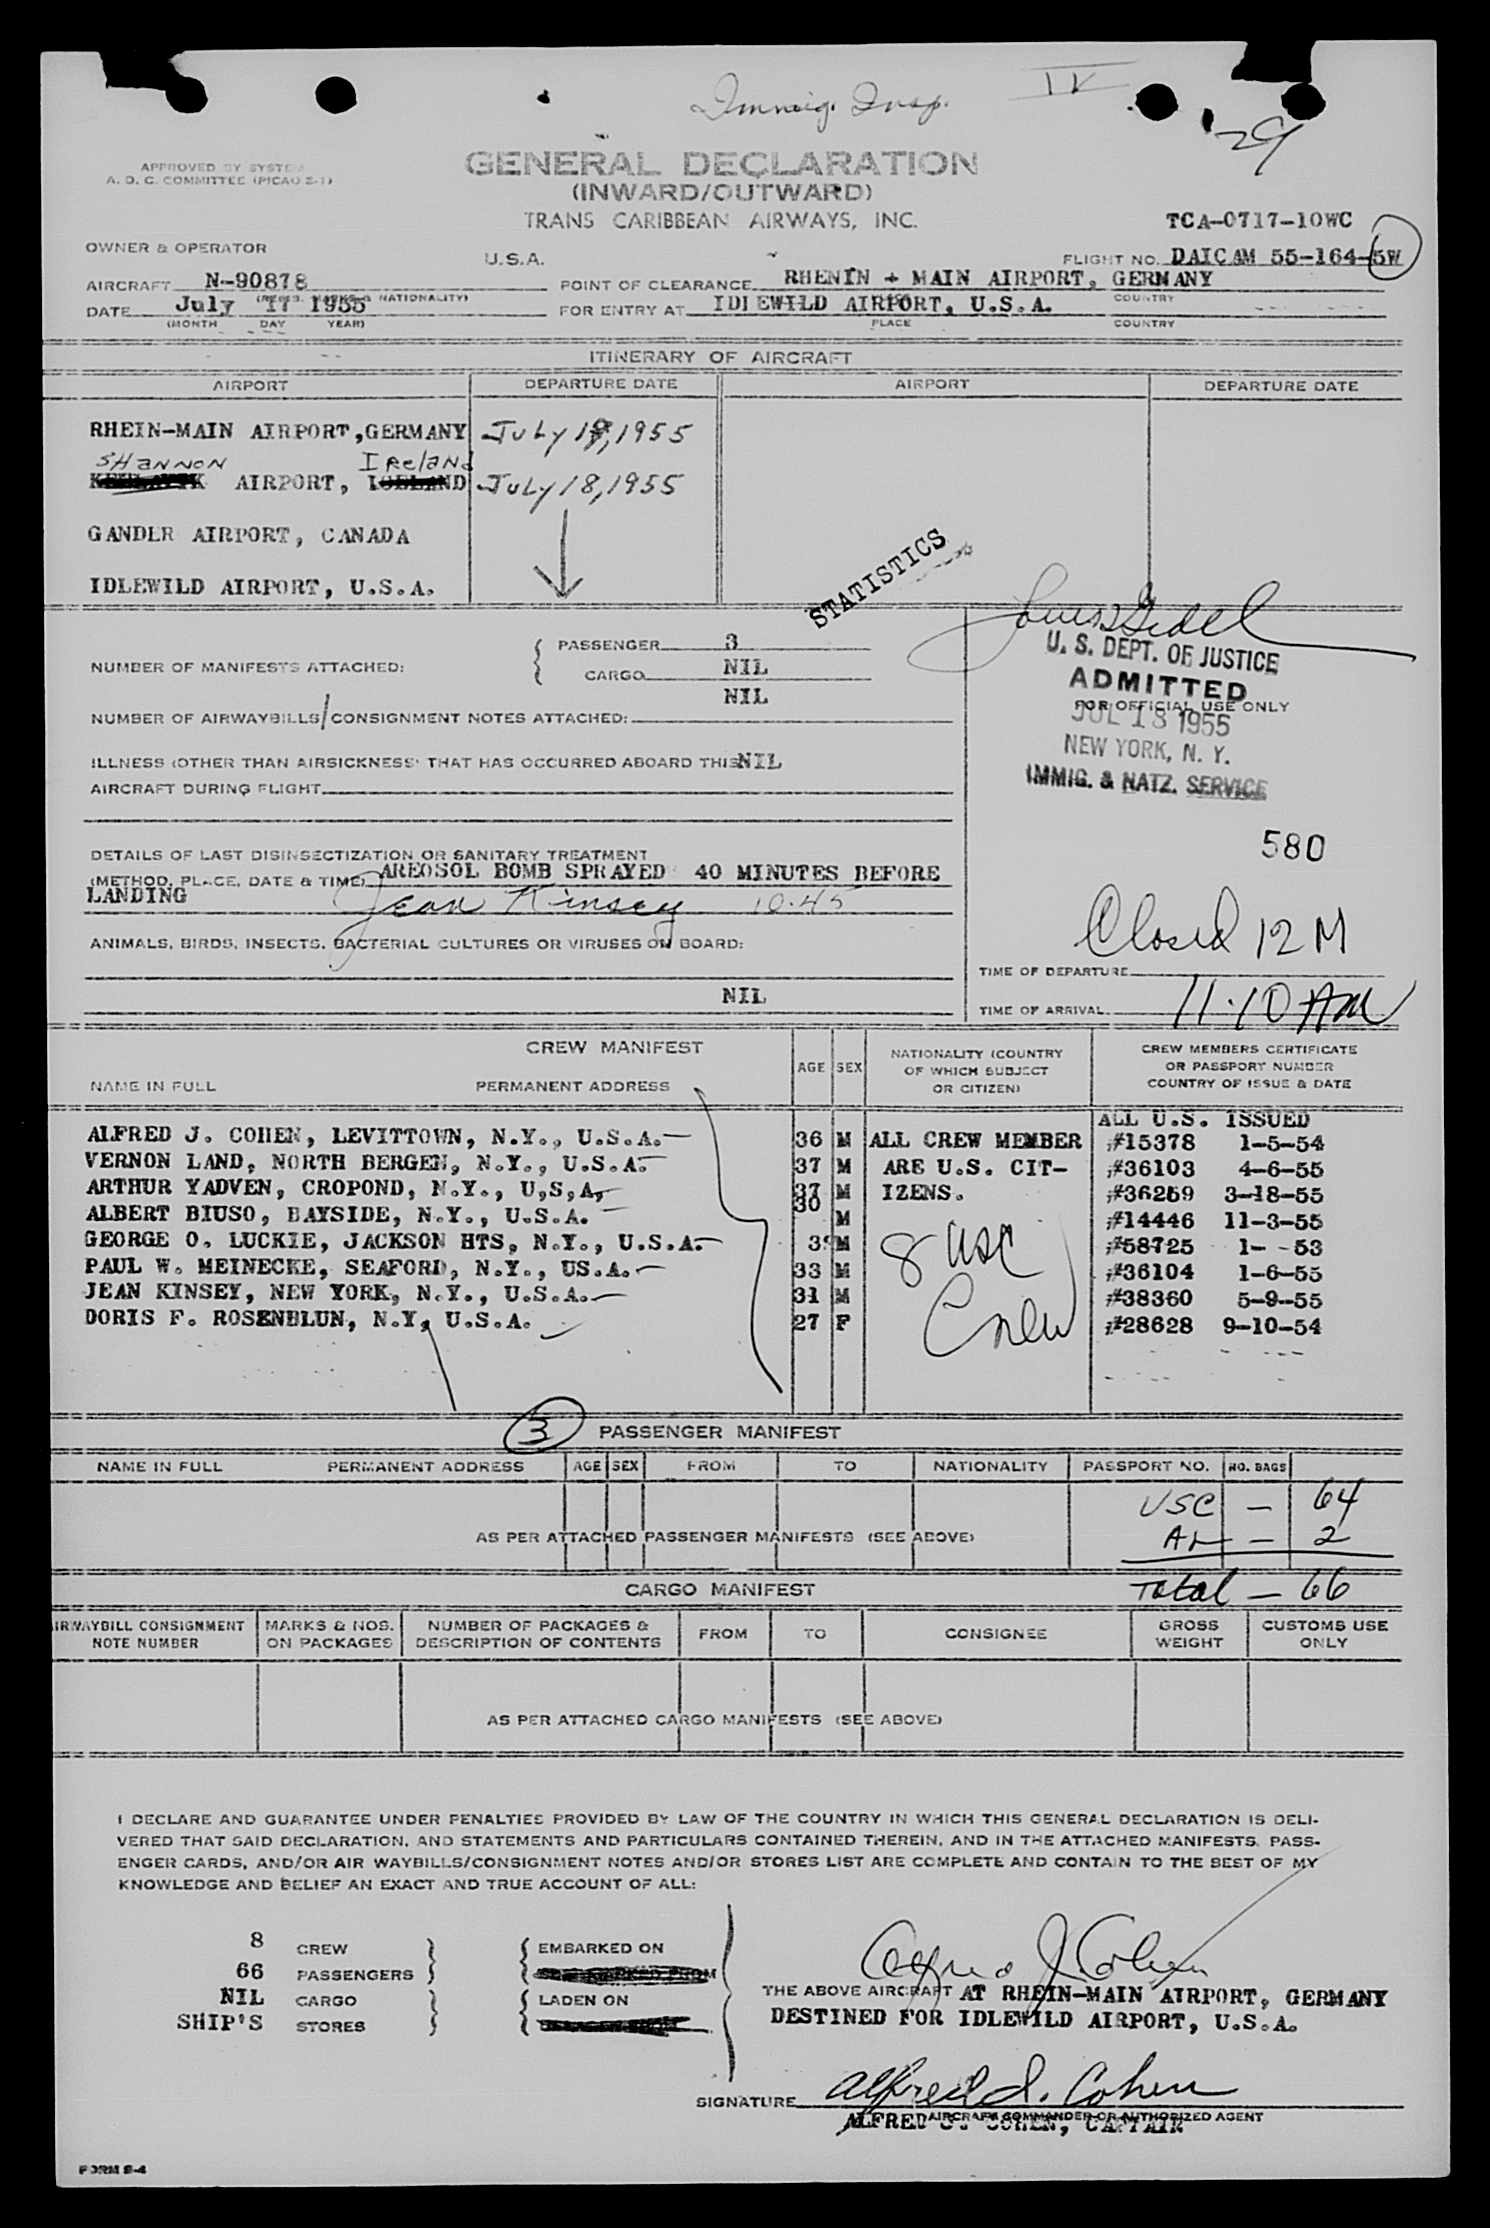 Immig. Insp.
IV
29
APPROVED BY SYSTEM
A. O. C. COMMITTEE (PICAO 2-1)
GENERAL DECLARATION
(INWARD/OUTWARD)
TRANS CARIBBEAN AIRWAYS, INC.
TCA-0717-10WC
OWNER & OPERATOR
U.S.A.
FLIGHT NO. DAICAM 55-164-5W
AIRCRAFT N-90878
POINT OF CLEARANCE RHENIN + MAIN AIRPORT, GERMANY
(REGIS. MARKS & NATIONALITY)
COUNTRY
DATE July 17 1955
FOR ENTRY AT IDLEWILD AIRPORT, U.S.A.
(MONTH DAY YEAR)
PLACE COUNTRY
ITINERARY OF AIRCRAFT
AIRPORT DEPARTURE DATE AIRPORT DEPARTURE DATE
RHEIN-MAIN AIRPORT,GERMANY July 18, 1955
SHANNON IRELAND
AIRPORT, July 18, 1955
GANDER AIRPORT, CANADA
IDLEWILD AIRPORT, U.S.A.
STATISTICS
NUMBER OF MANIFESTS ATTACHED:
PASSENGER 3
CARGO NIL
NIL
NUMBER OF AIRWAYBILLS/CONSIGNMENT NOTES ATTACHED:
U. S. DEPT. OF JUSTICE
ADMITTED
FOR OFFICIAL USE ONLY
JUL 18 1955
NEW YORK, N. Y.
IMMIG. & NATZ. SERVICE
ILLNESS (OTHER THAN AIRSICKNESS) THAT HAS OCCURRED ABOARD THIS NIL
AIRCRAFT DURING FLIGHT
580
DETAILS OF LAST DISINSECTIZATION OR SANITARY TREATMENT
(METHOD, PLACE, DATE & TIME) AREOSOL BOMB SPRAYED 40 MINUTES BEFORE
LANDING
Jean Kinsey 10:45
Closed 12 M
ANIMALS, BIRDS, INSECTS, BACTERIAL CULTURES OR VIRUSES ON BOARD:
TIME OF DEPARTURE
NIL
TIME OF ARRIVAL 11:10 AM
CREW MANIFEST
NAME IN FULL PERMANENT ADDRESS AGE SEX
NATIONALITY (COUNTRY
OF WHICH SUBJECT
OR CITIZEN)
CREW MEMBERS CERTIFICATE
OR PASSPORT NUMBER
COUNTRY OF ISSUE & DATE
ALL U.S. ISSUED
ALFRED J. COHEN, LEVITTOWN, N.Y., U.S.A. 36 M ALL CREW MEMBER #15378 1-5-54
VERNON LAND, NORTH BERGEN, N.Y., U.S.A. 37 M ARE U.S. CIT- #36103 4-6-55
ARTHUR YADVEN, CROPOND, N.Y., U,S,A, 37 M IZENS. #36259 3-18-55
ALBERT BIUSO, BAYSIDE, N.Y., U.S.A. 30 M #14446 11-3-55
GEORGE O. LUCKIE, JACKSON HTS, N.Y., U.S.A. M #58725 1- -53
PAUL W. MEINECKE, SEAFORD, N.Y., US.A. 33 M #36104 1-6-55
JEAN KINSEY, NEW YORK, N.Y., U.S.A. 31 M #38360 5-9-55
DORIS F. ROSENBLUN, N.Y, U.S.A. 27 F #28628 9-10-54
8 USC
Crew
3
PASSENGER MANIFEST
NAME IN FULL PERMANENT ADDRESS AGE SEX FROM TO NATIONALITY PASSPORT NO. NO. BAGS
USC - 64
AS PER ATTACHED PASSENGER MANIFESTS (SEE ABOVE)
AL - 2
Total - 66
CARGO MANIFEST
AIRWAYBILL CONSIGNMENT
NOTE NUMBER
MARKS & NOS.
ON PACKAGES
NUMBER OF PACKAGES &
DESCRIPTION OF CONTENTS
FROM
TO
CONSIGNEE
GROSS
WEIGHT
CUSTOMS USE
ONLY
AS PER ATTACHED CARGO MANIFESTS (SEE ABOVE)
I DECLARE AND GUARANTEE UNDER PENALTIES PROVIDED BY LAW OF THE COUNTRY IN WHICH THIS GENERAL DECLARATION IS DELI-
VERED THAT SAID DECLARATION, AND STATEMENTS AND PARTICULARS CONTAINED THEREIN, AND IN THE ATTACHED MANIFESTS, PASS-
ENGER CARDS, AND/OR AIR WAYBILLS/CONSIGNMENT NOTES AND/OR STORES LIST ARE COMPLETE AND CONTAIN TO THE BEST OF MY
KNOWLEDGE AND BELIEF AN EXACT AND TRUE ACCOUNT OF ALL:
8 CREW
66 PASSENGERS
NIL CARGO
SHIP'S STORES
EMBARKED ON
LADEN ON
Alfred J Cohen
THE ABOVE AIRCRAFT AT RHEIN-MAIN AIRPORT, GERMANY
DESTINED FOR IDLEWILD AIRPORT, U.S.A.
SIGNATURE Alfred J. Cohen
AIRCRAFT COMMANDER OR AUTHORIZED AGENT
ALFRED J. COHEN, CAPTAIN
FORM S-4